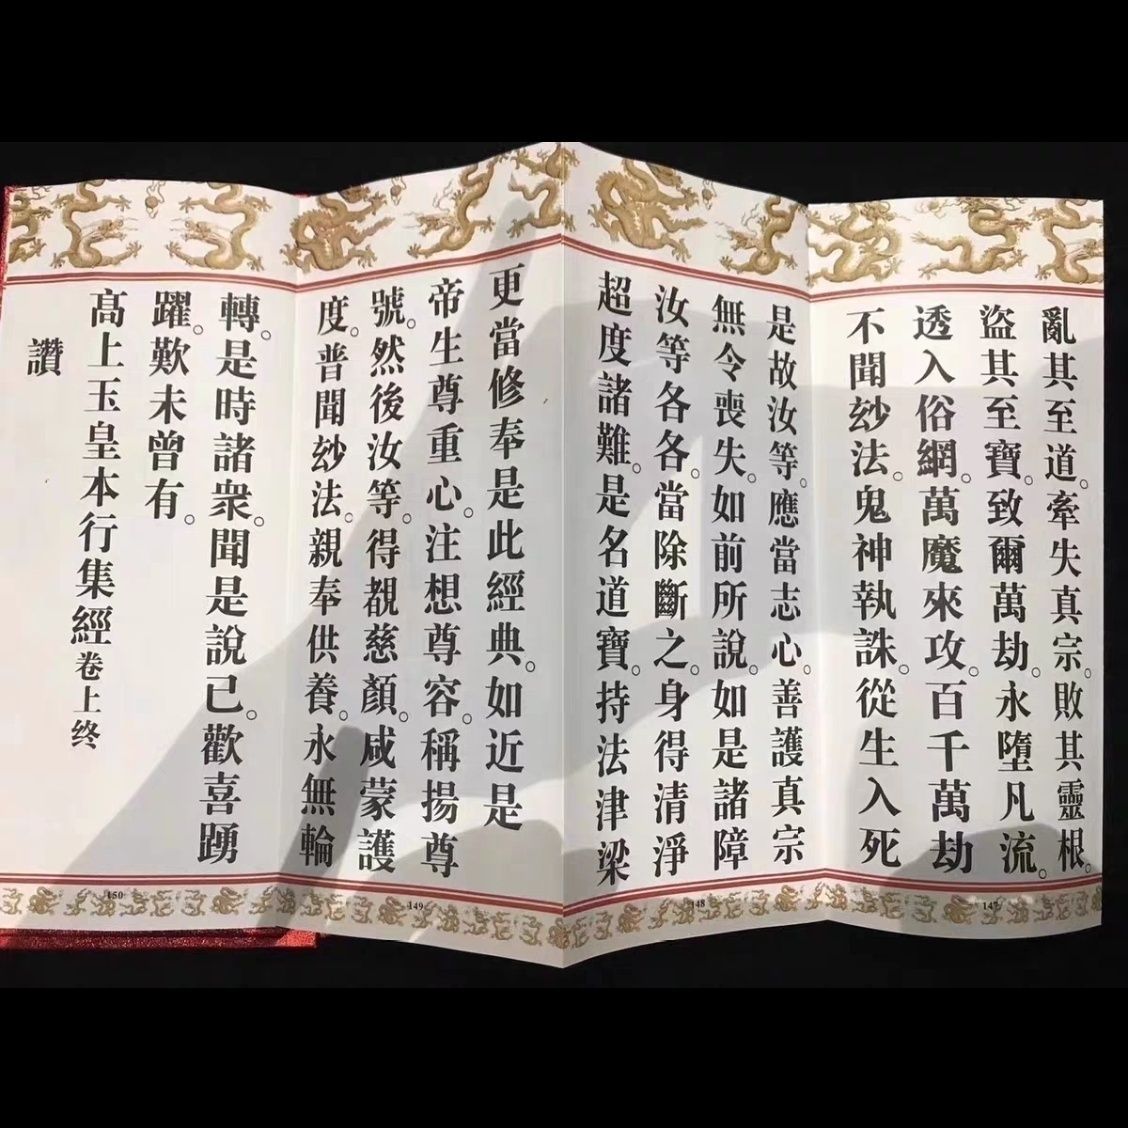 亂其至道。牽失真宗。敗其靈根。
盜其至寶。致爾萬劫。永墮凡流。
透入俗網。萬魔來攻。百千萬劫
不聞玅法。鬼神執誅。從生入死
147
是故汝等。應當志心。善護真宗
無令喪失。如前所說。如是諸障
汝等各各。當除斷之。身得清淨
超度諸難。是名道寶。持法津梁
148
更當修奉是此經典。如近是
帝生尊重心。注想尊容。稱揚尊
號。然後汝等。得覩慈顏。咸蒙護
度。普聞玅法。親奉供養。永無輪
149
轉。是時諸衆。聞是說已。歡喜踴
躍。歎未曾有。
高上玉皇本行集經卷上终
讚
150